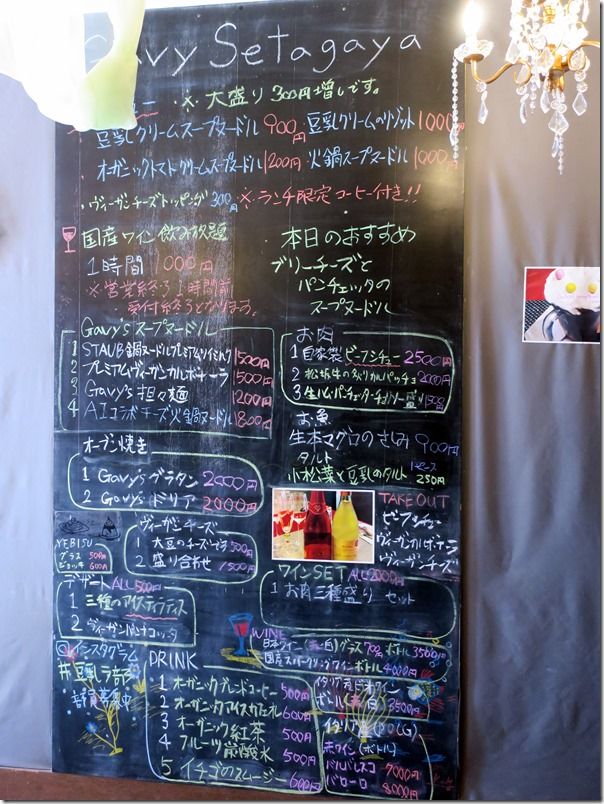 Gavy Setagaya
※ 大盛り 300円増しです。
豆乳クリームスープヌードル 900円
豆乳クリームのリゾット 1000円
オーガニックトマトクリームスープヌードル 1200円
火鍋スープヌードル 1000円
ヴィーガンチーズトッピング 300円
※ランチ限定コーヒー付き!!
国産ワイン飲み放題
1時間 1000円
※営業終了1時間前
受付終了となります。
本日のおすすめ
ブリーチーズと
パンチェッタの
スープヌードル
Gavy's スープヌードル
1 STAUB鍋ヌードルプレミアム 1500円
2 プレミアムヴィーガンカルボナーラ 1500円
3 Gavy's 担々麺 1200円
4 AIコラボチーズ火鍋ヌードル 1800円
お肉
1 自家製ビーフシチュー 2500円
2 松坂牛の炙りカルパッチョ 2000円
3 生ハム・パンチェッタ・チョリソー盛り 1500円
お魚
生本マグロのさしみ 900円
タルト
小松菜と豆乳のタルト 1ピース 250円
オーブン焼き
1 Gavy's グラタン 2000円
2 Gavy's ドリア 2000円
TAKE OUT
ビーフシチュー
ヴィーガンカルボナーラ
ヴィーガンチーズ
YEBISU
グラス 500円
ジョッキ 600円
ヴィーガンチーズ
1 大豆のチーズ 500円
2 盛り合わせ 1500円
ワインSET ALL2000円
1 お肉三種盛り セット
デザート ALL500円
1 三種のアイスティラミス
2 ヴィーガンパンナコッタ
WINE
日本ワイン(赤・白)グラス700円 ボトル3500円
国産スパークリングワインボトル4000円
@インスタグラム
#豆乳ラ部
部員募集中
DRINK
1 オーガニックブレンドコーヒー 500円
2 オーガニックアイスカフェオレ 600円
3 オーガニック紅茶 500円
4 フルーツ炭酸水 500円
5 イチゴのスムージー 600円
イタリア産ビオワイン
ボトル(赤・白) 3500円
イタリア(DOCG)
赤ワイン(ボトル)
バルバレスコ 7000円
バローロ 8000円